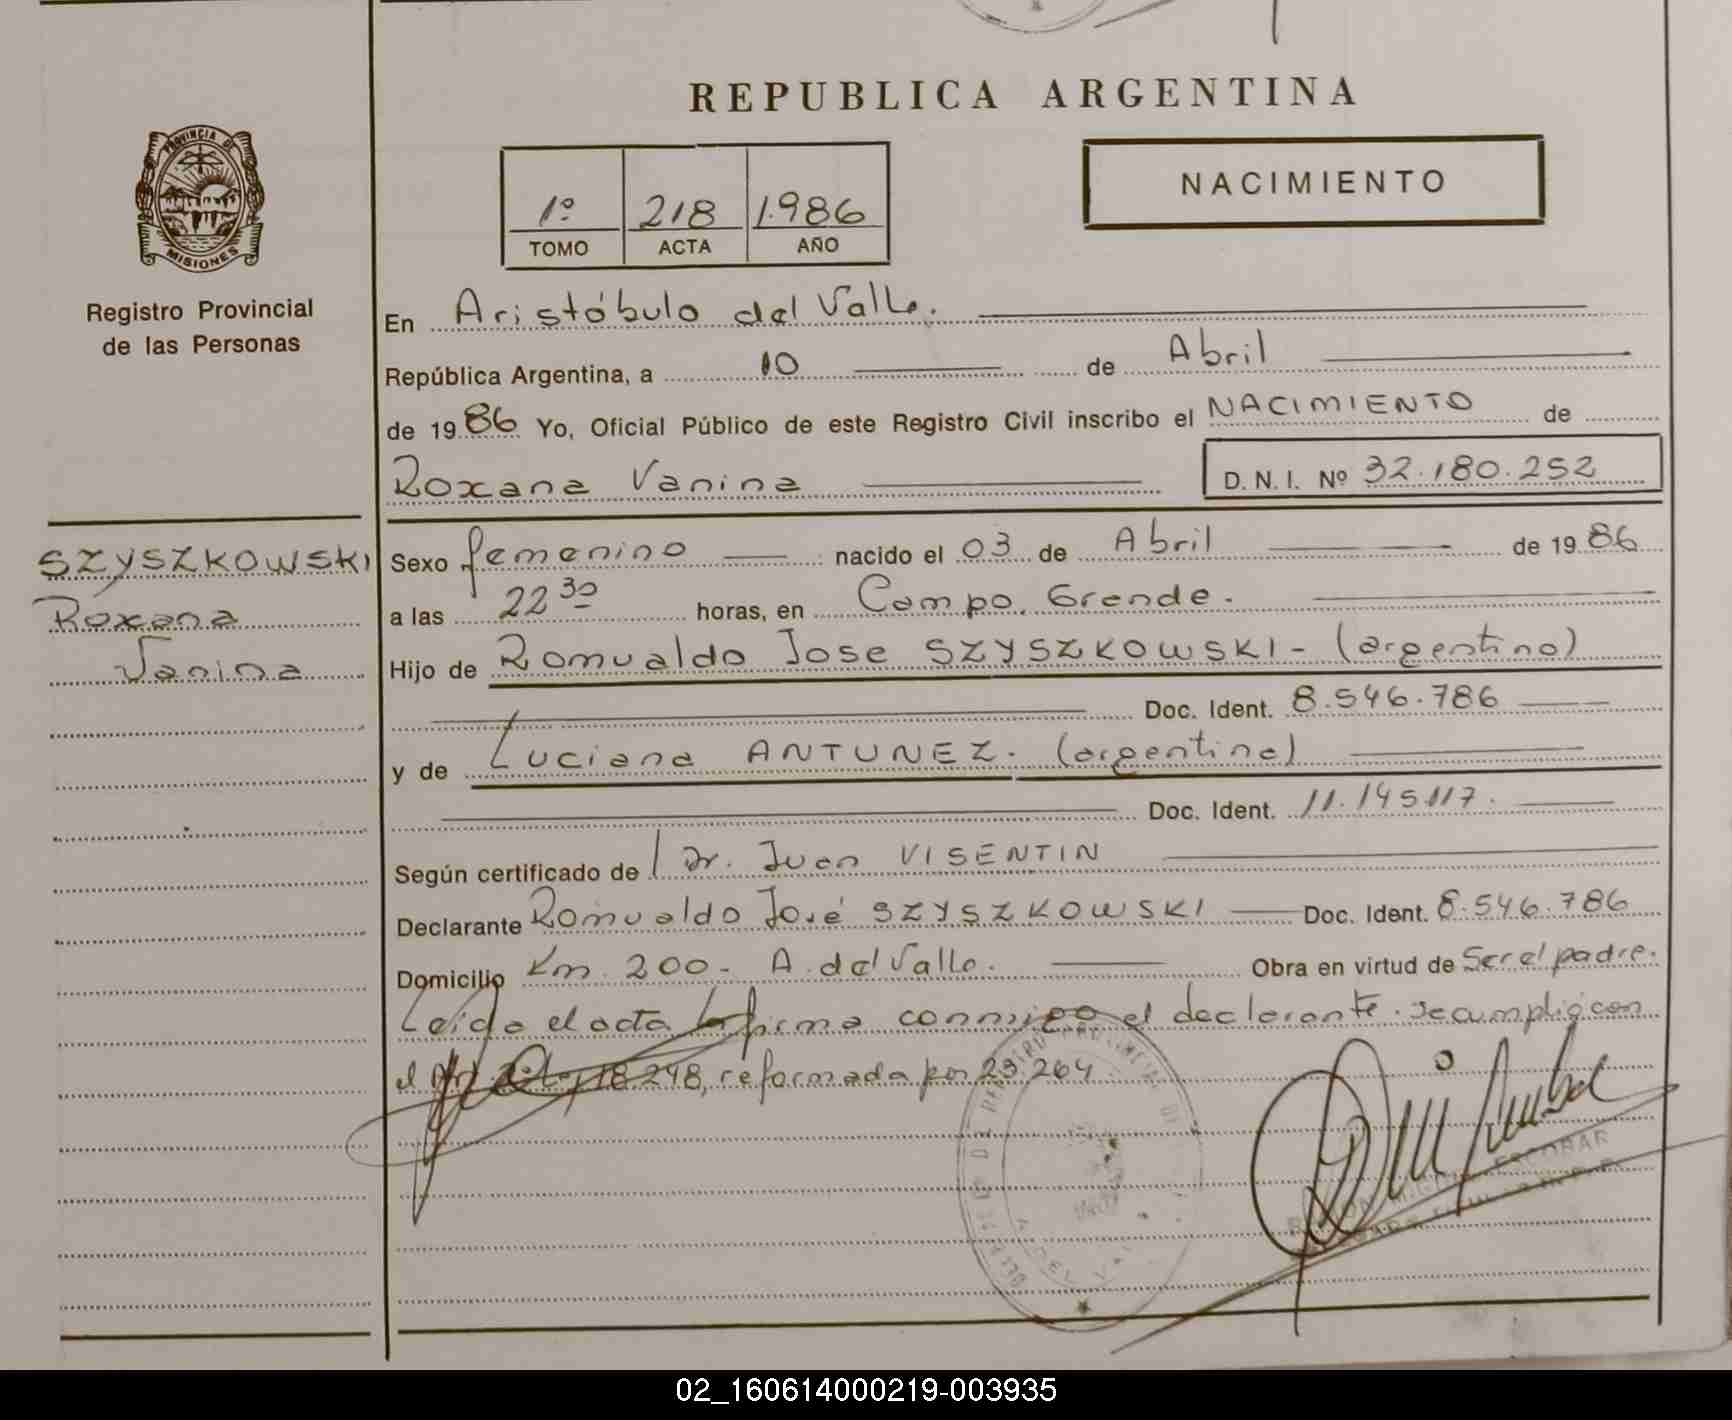 REPUBLICA ARGENTINA
PROVINCIA DE
MISIONES
Registro Provincial
de las Personas
1º 218 1.986
TOMO ACTA AÑO
NACIMIENTO
En Aristóbulo del Valle.
República Argentina, a 10 de Abril
de 1986 Yo, Oficial Público de este Registro Civil inscribo el NACIMIENTO de
Roxana Vanina D.N.I. Nº 32.180.252
SZYSZKOWSKI
Roxana
Vanina
Sexo femenino nacido el 03 de Abril de 1986
a las 22 30 horas, en Campo Grande.
Hijo de Romualdo Jose SZYSZKOWSKI - (argentino)
Doc. Ident. 8.546.786
y de Luciana ANTUNEZ. (argentina)
Doc. Ident. 11.145.117.
Según certificado de Dr. Juan VISENTIN
Declarante Romualdo José SZYSZKOWSKI Doc. Ident. 8.546.786
Domicilio Km. 200 - A. del Valle. Obra en virtud de Ser el padre.
Leída el acta la firma conmigo el declarante. Se cumplió con
el Art. 2 Ley 18.248, reformada por 23.264
ESCOBAR
02_160614000219-003935